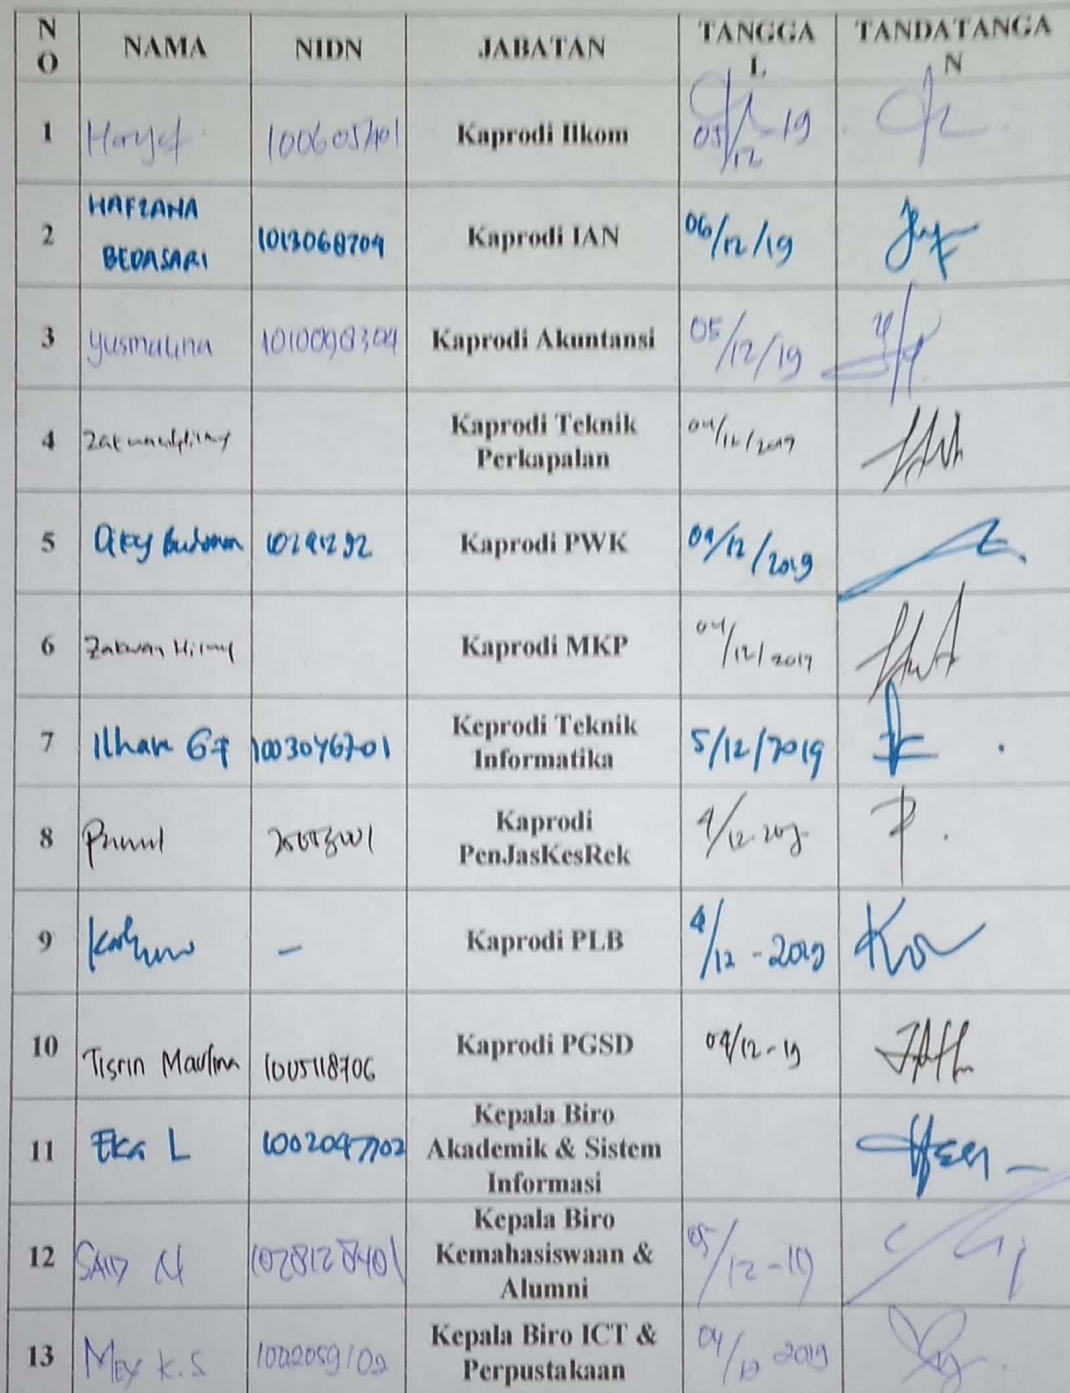 NO NAMA NIDN JABATAN TANGGAL TANDATANGAN
1 Kaprodi Ilkom 05/12-19
2 HAFZANA BEDASARI 1013068704 Kaprodi IAN 06/12/19
3 Yusmalina 1010098304 Kaprodi Akuntansi 05/12/19
4 Kaprodi Teknik Perkapalan 04/12/2019
5 Kaprodi PWK 04/12/2019
6 Zakwan Hilmy Kaprodi MKP 04/12/2019
7 Ilham 1003046701 Keprodi Teknik Informatika 5/12/2019
8 Kaprodi PenJasKesRek
9 – Kaprodi PLB 4/12-2019
10 Tisrin Maulina 1005118706 Kaprodi PGSD 04/12-19
11 Eka L 1002047702 Kepala Biro Akademik & Sistem Informasi
12 SAID N 1028128401 Kepala Biro Kemahasiswaan & Alumni 05/12-19
13 Mey K.S 1022059102 Kepala Biro ICT & Perpustakaan 04/12 2019